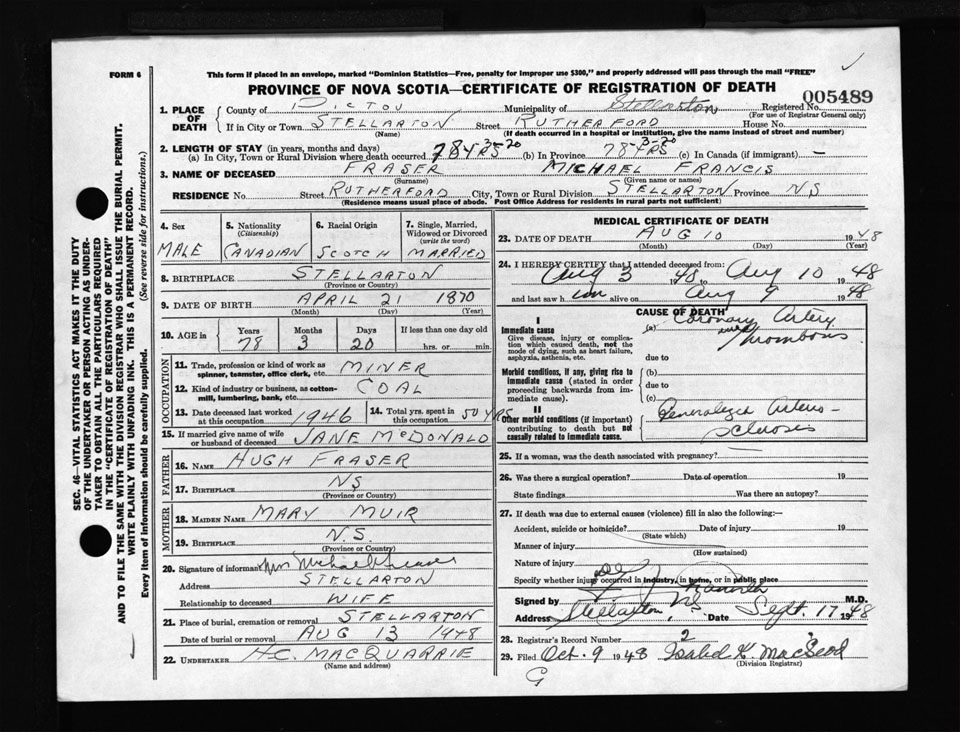 FORM 6
This form if placed in an envelope, marked "Dominion Statistics—Free, penalty for improper use $300," and properly addressed will pass through the mail "FREE"
PROVINCE OF NOVA SCOTIA—CERTIFICATE OF REGISTRATION OF DEATH
005489
1. PLACE OF DEATH
County of PICTOU Municipality of Stellarton Registered No.
(For use of Registrar General only)
If in City or Town STELLARTON Street RUTHERFORD House No.
(Name) (If death occurred in a hospital or institution, give the name instead of street and number)
2. LENGTH OF STAY (in years, months and days)
(a) In City, Town or Rural Division where death occurred 78 YRS-3-20 (b) In Province 78 YRS-3-20 (c) In Canada (if immigrant) —
3. NAME OF DECEASED FRASER MICHAEL FRANCIS
(Surname) (Given name or names)
RESIDENCE No. Street RUTHERFORD City, Town or Rural Division STELLARTON Province NS
(Residence means usual place of abode. Post Office Address for residents in rural parts not sufficient)
4. Sex
MALE
5. Nationality (Citizenship)
CANADIAN
6. Racial Origin
SCOTCH
7. Single, Married, Widowed or Divorced (write the word)
MARRIED
8. BIRTHPLACE STELLARTON
(Province or Country)
9. DATE OF BIRTH APRIL 21 1870
(Month) (Day) (Year)
10. AGE in Years Months Days If less than one day old
78 3 20 hrs. or min.
OCCUPATION
11. Trade, profession or kind of work as spinner, teamster, office clerk, etc. MINER
12. Kind of industry or business, as cotton-mill, lumbering, bank, etc. COAL
13. Date deceased last worked at this occupation 1946
14. Total yrs. spent in this occupation 50 YRS
15. If married give name of wife or husband of deceased JANE McDONALD
FATHER
16. NAME HUGH FRASER
17. BIRTHPLACE NS
(Province or Country)
MOTHER
18. MAIDEN NAME MARY MUIR
19. BIRTHPLACE N.S.
(Province or Country)
20. Signature of informant Mrs Michael Fraser
Address STELLARTON
Relationship to deceased WIFE
21. Place of burial, cremation or removal STELLARTON
Date of burial or removal AUG 13 1948
22. UNDERTAKER H.C. MACQUARRIE
(Name and address)
MEDICAL CERTIFICATE OF DEATH
23. DATE OF DEATH AUG 10 1948
(Month) (Day) (Year)
24. I HEREBY CERTIFY that I attended deceased from:
Aug 3 1948 to Aug 10 1948
and last saw him alive on Aug 9 1948
CAUSE OF DEATH
I
Immediate cause
Give disease, injury or complication which caused death, not the mode of dying, such as heart failure, asphyxia, asthenia, etc.
(a) Coronary Artery
Thrombosis
due to
Morbid conditions, if any, giving rise to immediate cause (stated in order proceeding backwards from immediate cause).
(b)
due to
(c)
II
Other morbid conditions (if important) contributing to death but not causally related to immediate cause.
Generalized Arterio-
sclerosis
25. If a woman, was the death associated with pregnancy?
26. Was there a surgical operation? Date of operation 19
State findings Was there an autopsy?
27. If death was due to external causes (violence) fill in also the following:—
Accident, suicide or homicide? Date of injury 19
(State which)
Manner of injury
(How sustained)
Nature of injury
Specify whether injury occurred in industry, in home, or in public place
Signed by M.D.
Address Stellarton N.S. Date Sept. 17 1948
28. Registrar's Record Number 2
29. Filed Oct. 9 1948 Isabel K. MacLeod
(Division Registrar)
G
SEC. 46—VITAL STATISTICS ACT MAKES IT THE DUTY
OF THE UNDERTAKER OR PERSON ACTING AS UNDER-
TAKER TO OBTAIN ALL THE PARTICULARS REQUIRED
IN THE "CERTIFICATE OF REGISTRATION OF DEATH"
AND TO FILE THE SAME WITH THE DIVISION REGISTRAR WHO SHALL ISSUE THE BURIAL PERMIT.
WRITE PLAINLY WITH UNFADING INK. THIS IS A PERMANENT RECORD.
Every item of information should be carefully supplied. (See reverse side for instructions.)